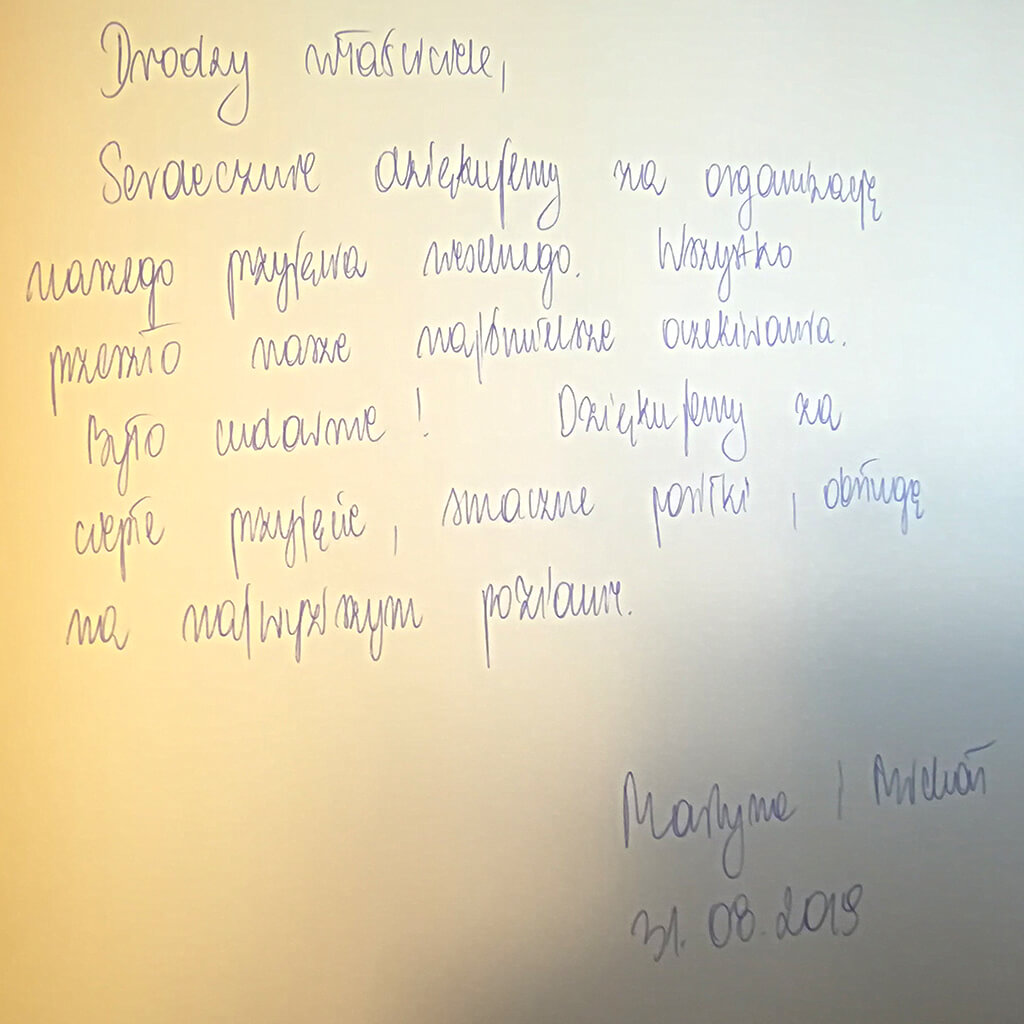 Drodzy właściciele,
Serdecznie dziękujemy za organizację
naszego przyjęcia weselnego. Wszystko
przeszło nasze najśmielsze oczekiwania.
Było cudownie! Dziękujemy za
ciepłe przyjęcie, smaczne posiłki, obsługę
na najwyższym poziomie.
Martyna i Michał
31.08.2019